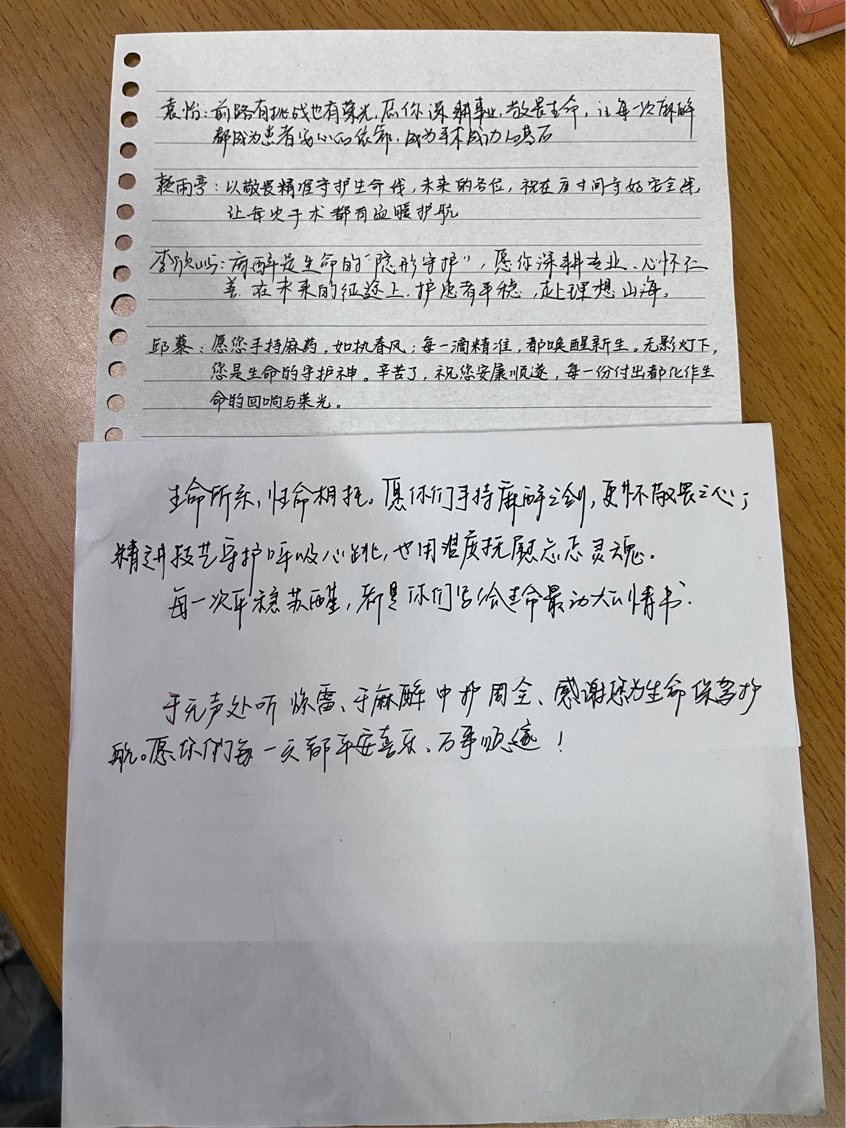 袁怡：前路有挑战也有荣光，愿你深耕事业，敬畏生命，让每一次麻醉
都成为患者安心的依靠，成为手术成功的基石
赖雨亭：以敬畏精准守护生命线，未来的各位，祝在方寸间守好安全线，
让每次手术都有温暖护航
李欣屿：麻醉是生命的“隐形守护”，愿你深耕专业、心怀仁
善，在未来的征途上，护患者平稳，赴理想山海。
邱慕：愿您手持麻药，如执春风；每一滴精准，都唤醒新生。无影灯下，
您是生命的守护神。辛苦了，祝您安康顺遂，每一份付出都化作生
命的回响与荣光。
生命所系，性命相托。愿你们手持麻醉之剑，更怀敬畏之心；
精进技艺守护呼吸心跳，也用温度抚慰忐忑灵魂。
每一次平稳苏醒，都是你们写给生命最动人的情书.
于无声处听惊雷、于麻醉中护周全、感谢您为生命保驾护
航。愿你們每一天都平安喜乐、万事顺遂！